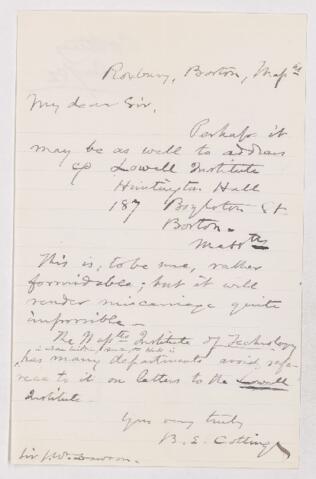 Roxbury, Boston, Mass
My dear Sir,
Perhaps it
may be as well to address
Lowell Institute
Huntington Hall
187 Boylston St
Boston
Masstts
This is, to be sure, rather
formidable; but it will
render miscarriage quite
impossible —
The Masstts Institute of Technology
has many departments avoid refe-
rence to it on letters to the Lowell
Institute.
Yrs very truly
B. E. Cotting
Sir J. W. Dawson.